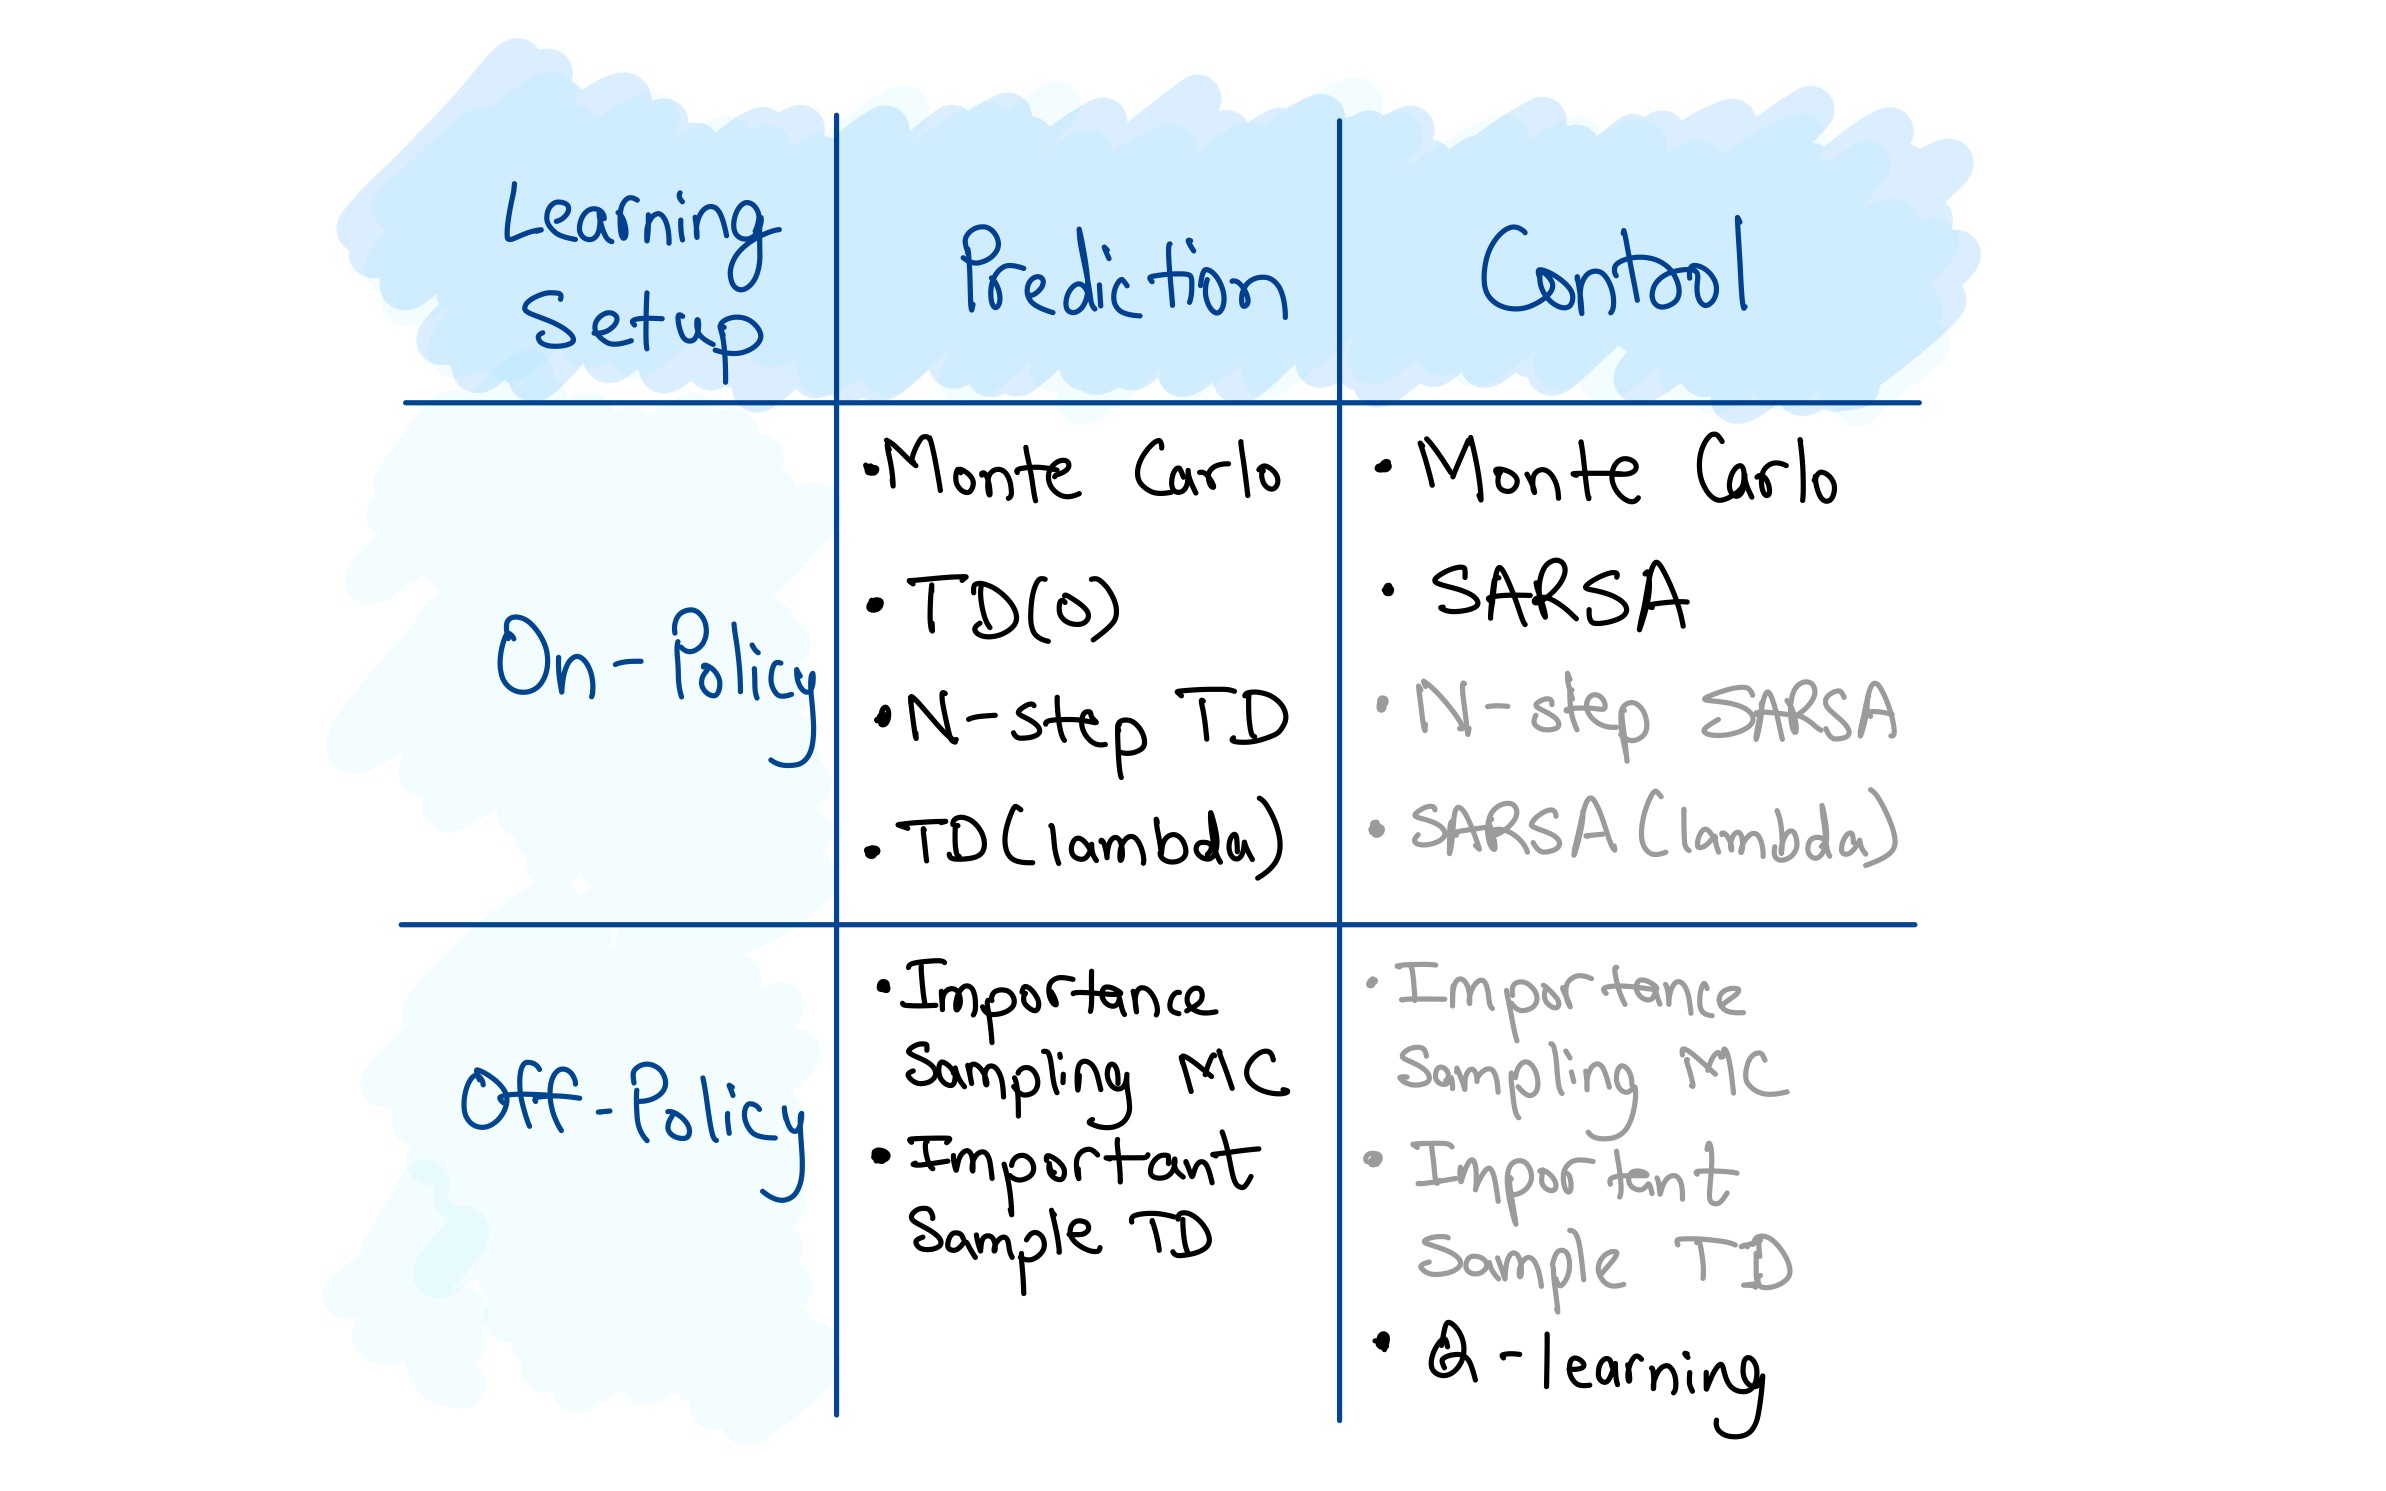 Learning
Setup
Prediction
Control
On-Policy
• Monte Carlo
• TD(0)
• N-step TD
• TD(lambda)
• Monte Carlo
• SARSA
• N-step SARSA
• SARSA(lambda)
Off-Policy
• Importance
Sampling MC
• Important
Sample TD
• Importance
Sampling MC
• Important
Sample TD
• Q-learning